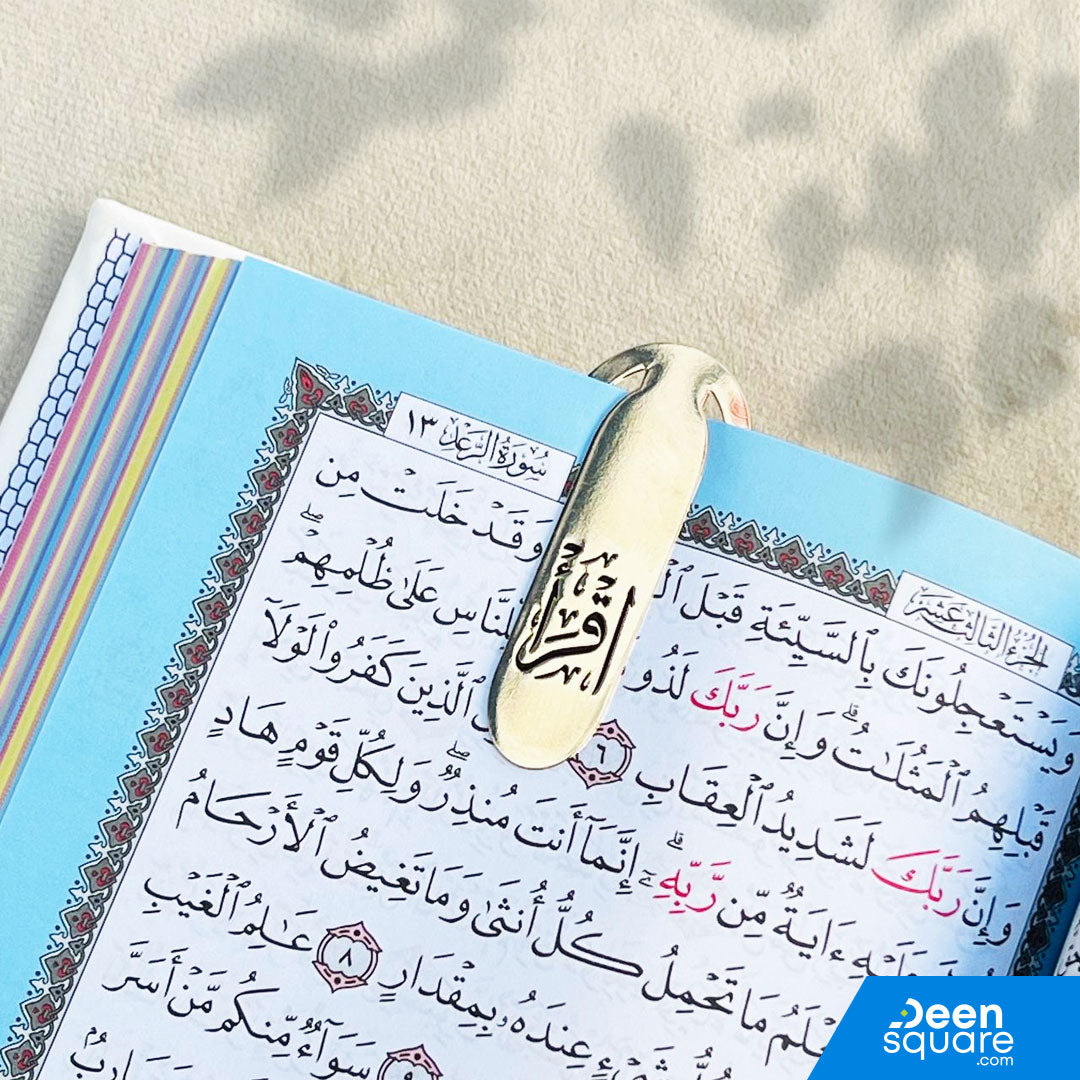 سُورَةُ الرَّعْدِ ١٣
الجُزْءُ الثَّالِثَ عَشَرَ
وَيَسْتَعْجِلُونَكَ بِٱلسَّيِّئَةِ قَبْلَ وَقَدْ خَلَتْ مِن
قَبْلِهِمُ ٱلْمَثُلَـٰتُۗ وَإِنَّ رَبَّكَ لَذُو لِّلنَّاسِ عَلَىٰ ظُلْمِهِمْۖ
وَإِنَّ رَبَّكَ لَشَدِيدُ ٱلْعِقَابِ ٦ ٱلَّذِينَ كَفَرُوا۟ لَوْلَآ
عَلَيْهِ ءَايَةٌ مِّن رَّبِّهِۦٓۗ إِنَّمَآ أَنتَ مُنذِرٌۖ وَلِكُلِّ قَوْمٍ هَادٍ
مَا تَحْمِلُ كُلُّ أُنثَىٰ وَمَا تَغِيضُ ٱلْأَرْحَامُ
عِندَهُۥ بِمِقْدَارٍ ٨ عَـٰلِمُ ٱلْغَيْبِ
٩ سَوَآءٌ مِّنكُم مَّنْ أَسَرَّ
اقْرَأْ
Deen
square
.com